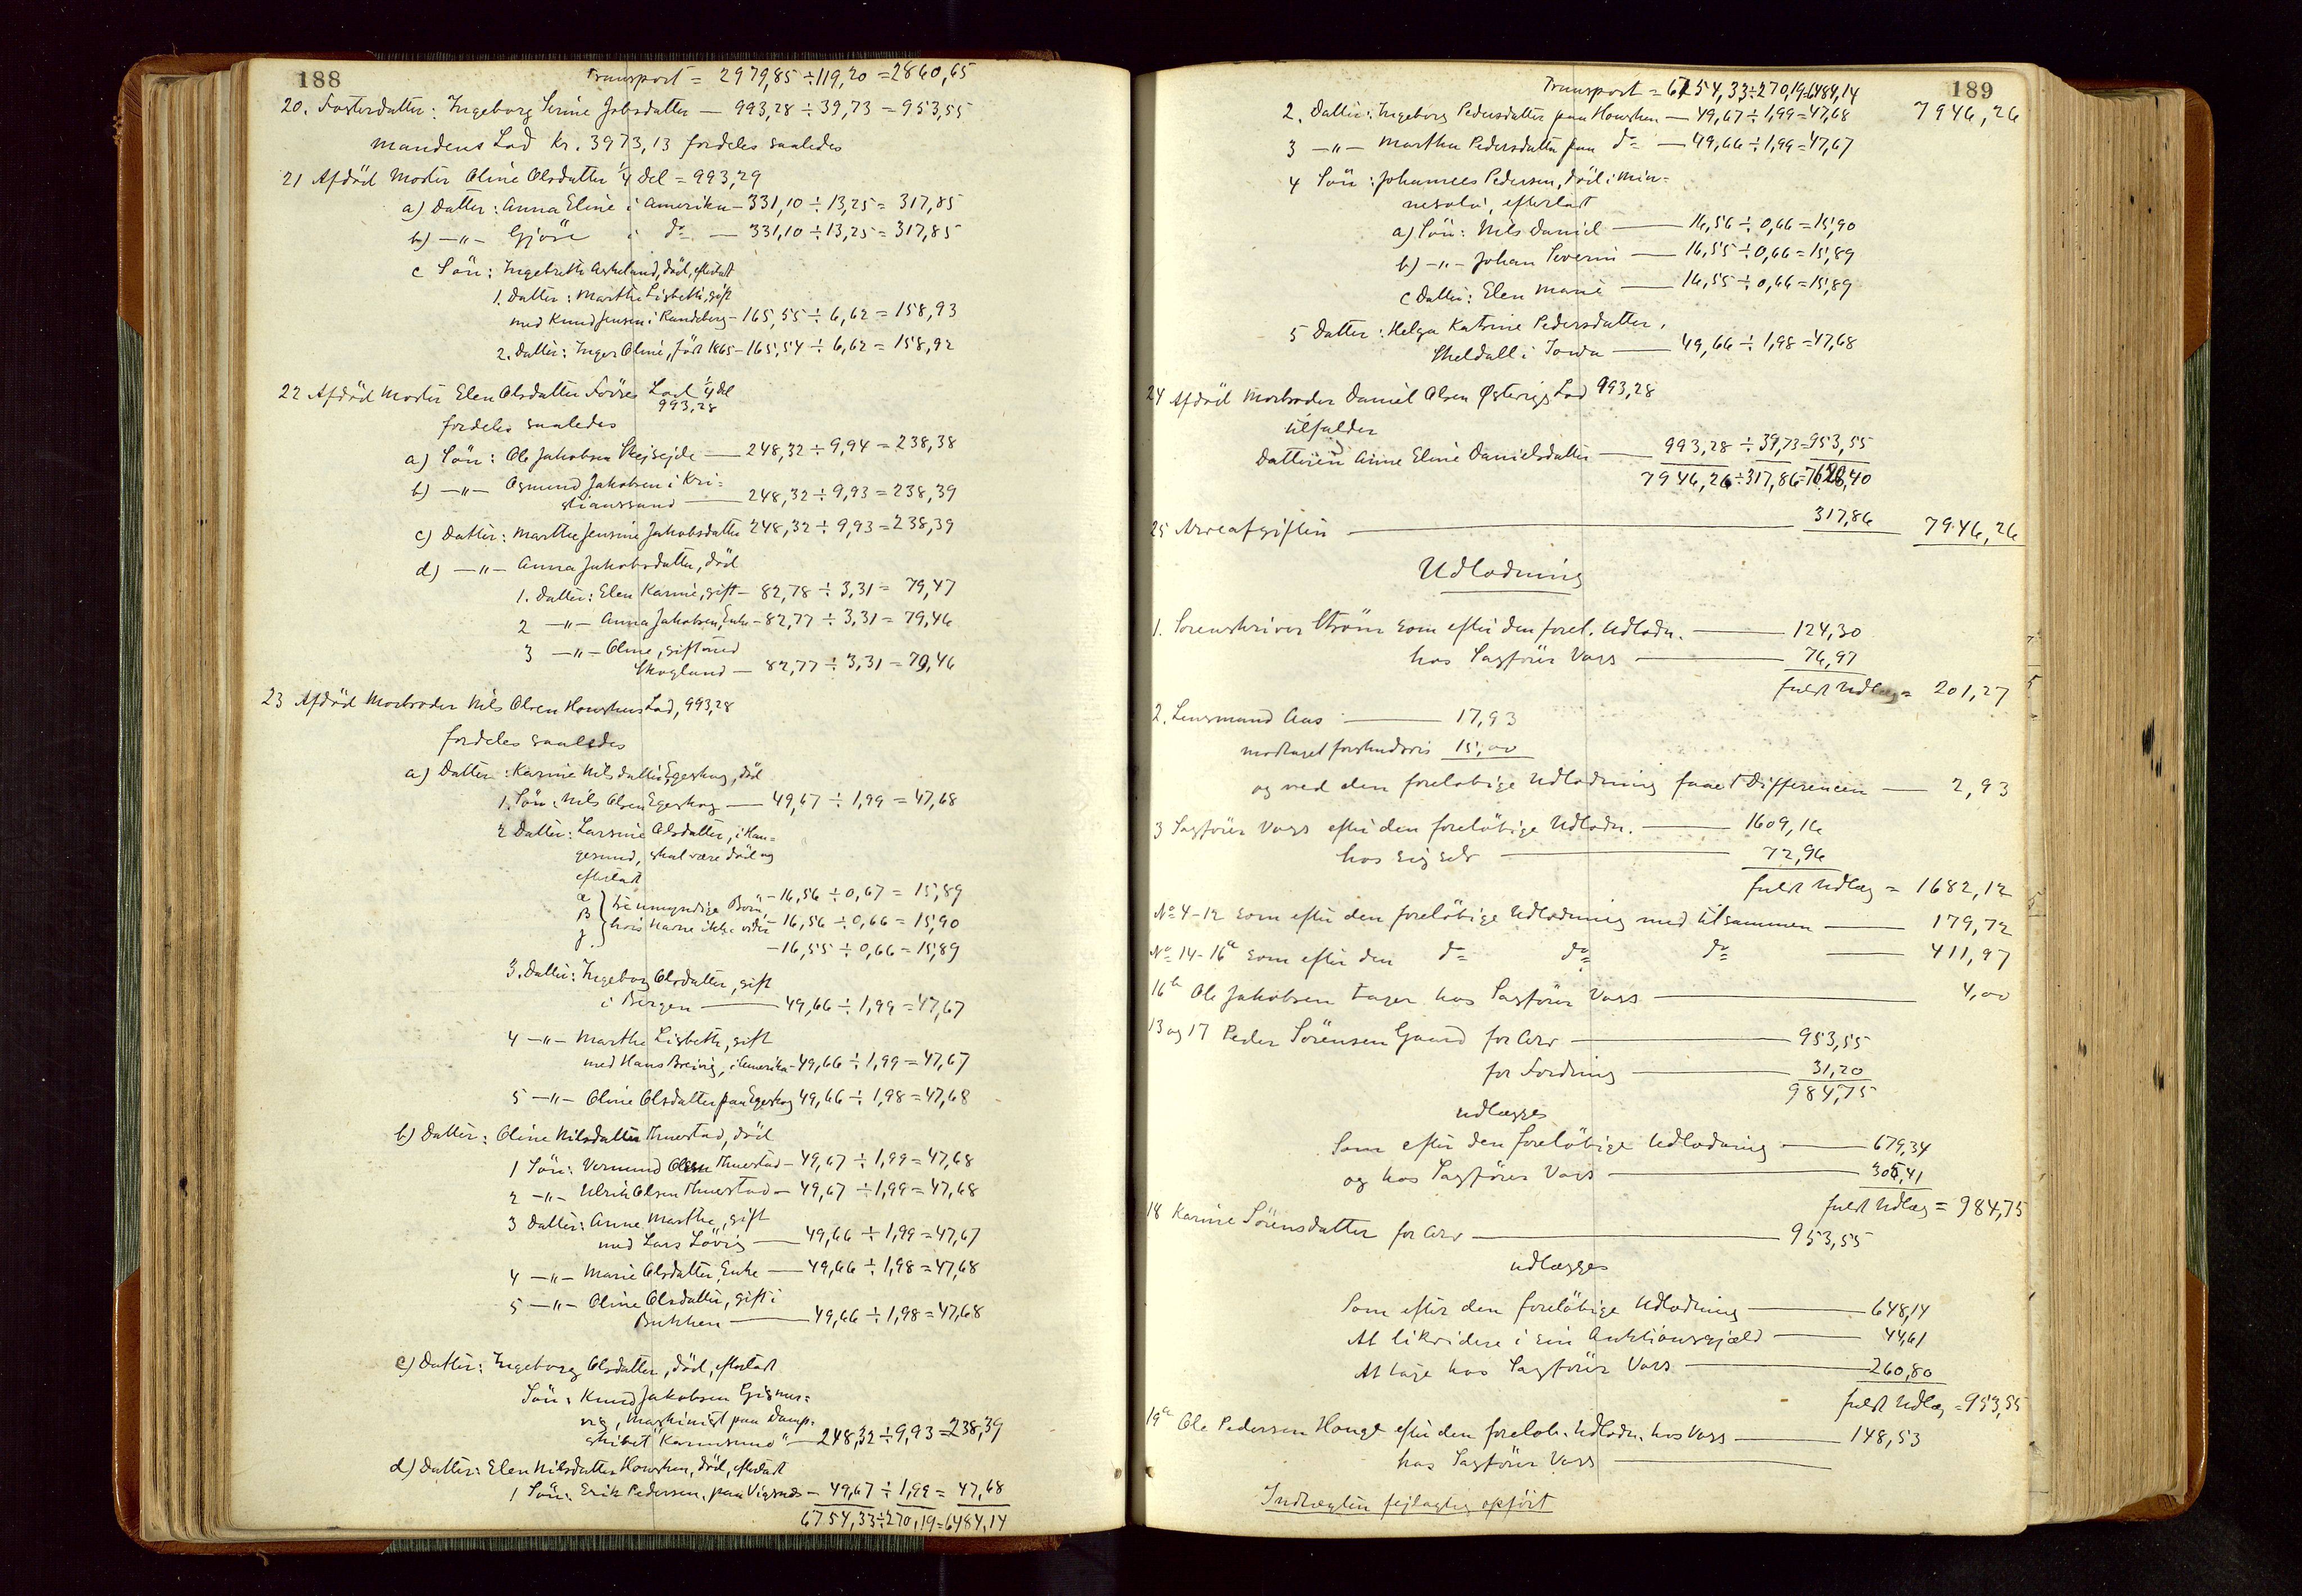 188
Transport = 2979,85 ÷ 119,20 = 2860,65
20. Fosterdatter: Ingeborg Serine Jobsdatter — 993,28 ÷ 39,73 = 953,55
Mandens Lod Kr. 3973,13 fordeles saaledes
21 Afdöd Moster Oline Olsdatter ¼ Del = 993,29
a) Datter: Anna Eline i Amerika – 331,10 ÷ 13,25 = 317,85
b) —"— Gjöse i do — 331,10 ÷ 13,25 = 317,85
c Sön: Ingebreth Askeland, död, efterladt
1. Datter: Marthe Lisbeth, gift
med Knud Jensen i Randeberg – 165,55 ÷ 6,62 = 158,93
2. Datter: Inger Oline, född 1865 – 165,54 ÷ 6,62 = 158,92
22 Afdöd Moster Elen Olsdatter Förres Lod ¼ del
993,28
fordeles saaledes
a) Sön: Ole Jakobsen Skejsejde — 248,32 ÷ 9,94 = 238,38
b) —"— Osmund Jakobsen i Kri-
stianssund — 248,32 ÷ 9,93 = 238,39
c) Datter: Marthe Jensine Jakobsdatter 248,32 ÷ 9,93 = 238,39
d) —"— Anna Jakobsdatter, död
1. Datter: Elen Karine, gift – 82,78 ÷ 3,31 = 79,47
2 —"— Anna Jakobsen, Enke – 82,77 ÷ 3,31 = 79,46
3 —"— Oline, gift med
Skoglund — 82,77 ÷ 3,31 = 79,46
23 Afdöd Morbroder Nils Olsen Howskens Lod, 993,28
fordeles saaledes
a) Datter: Karine Nilsdatter Egeskog, död
1. Sön: Nils Olsen Egeskog — 49,67 ÷ 1,99 = 47,68
2 Datter: Larsine Olsdatter, i Hau-
gesund, skal være död og
efterladt
α } tre umyndige Börn, – 16,56 ÷ 0,67 = 15,89
β } hvis Navne ikke vides – 16,56 ÷ 0,66 = 15,90
γ } – 16,55 ÷ 0,66 = 15,89
3. Datter: Ingeborg Olsdatter, gift
i Bergen — 49,66 ÷ 1,99 = 47,67
4 —"— Marthe Lisbeth, gift
med Hans Breivig, i Amerika – 49,66 ÷ 1,99 = 47,67
5 —"— Oline Olsdatter paa Egeskog 49,66 ÷ 1,98 = 47,68
b) Datter: Oline Nilsdatter Thuestad, död
1 Sön: Vermund Olsen Thuestad – 49,67 ÷ 1,99 = 47,68
2 —"— Ulrik Olsen Thuestad – 49,67 ÷ 1,99 = 47,68
3 Datter: Anne Marthe, gift
med Lars Lövig — 49,66 ÷ 1,99 = 47,67
4 —"— Marie Olsdatter, Enke — 49,66 ÷ 1,98 = 47,68
5 —"— Oline Olsdatter, gift i
Bukken — 49,66 ÷ 1,98 = 47,68
c) Datter: Ingeborg Olsdatter, död, efterladt
Sön: Knud Jakobsen Gismer-
vig, Maskinist paa Damp-
skibet "Karmsund" — 248,32 ÷ 9,93 = 238,39
d) Datter: Elen Nilsdatter Howsken, död, efterladt
1 Sön: Erik Pedersen, paa Vigsnes – 49,67 ÷ 1,99 = 47,68
6754,33 ÷ 270,19 = 6484,14
189
Transport = 6754,33 ÷ 270,19 = 6484,14
2. Datter: Ingeborg Pedersdatter paa Howsken — 49,67 ÷ 1,99 = 47,68 7946,26
3 —"— Martha Pedersdatter paa do — 49,66 ÷ 1,99 = 47,67
4 Sön: Johannes Pedersen, död i Min-
nesota, efterladt
a) Sön: Nils Daniel — 16,56 ÷ 0,66 = 15,90
b) —"— Johan Severin — 16,55 ÷ 0,66 = 15,89
c Datter: Elen Marie — 16,55 ÷ 0,66 = 15,89
5 Datter: Helga Katrine Pedersdatter,
Sheldall i Iowa — 49,66 ÷ 1,98 = 47,68
24 Afdöd Morbroder Daniel Olsen Østevigs Lod 993,28
tilfalder
Datteren Anne Eline Danielsdatter — 993,28 ÷ 39,73 = 953,55
7946,26 ÷ 317,86 = 7628,40
25 Arveafgiften — 317,86 7946,26
Udlodning
1. Sorenskriver Ström som efter den forel. Udlodn. — 124,30
hos Sagförer Vass — 76,97
fuldt Udlæg = 201,27
2. Lensmand Aas — 17,93
modtaget forskudsvis 15,00
og ved den foreløbige Udlodning faaet Differencen — 2,93
3 Sagförer Vass efter den forelöbige Udlodn. — 1609,16
hos sig selv — 72,96
fuldt Udlæg = 1682,12
No 4-12 som efter den forelöbige Udlodning med tilsammen — 179,72
No 14-16a som efter den do do do — 411,97
16b Ole Jakobsen tager hos Sagförer Vass — 4,00
13 og 17 Peder Sörensen Gaard for Arv — 953,55
for Fordring — 31,20
984,75
udlægges
Som efter den forelöbige Udlodning — 679,34
og hos Sagförer Vass — 305,41
fuldt Udlæg = 984,75
18 Karine Sörensdatter for Arv — 953,55
udlægges
Som efter den forelöbige Udlodning — 648,14
At likvidere i sin Auktionsgjæld — 44,61
At tage hos Sagförer Vass — 260,80
fuldt Udlæg = 953,55
19a Ole Pedersen Hauge efter den foreløb. Udlodn. hos Vass — 148,53
hos Sagförer Vass —
Indtægten fejlagtig opfört